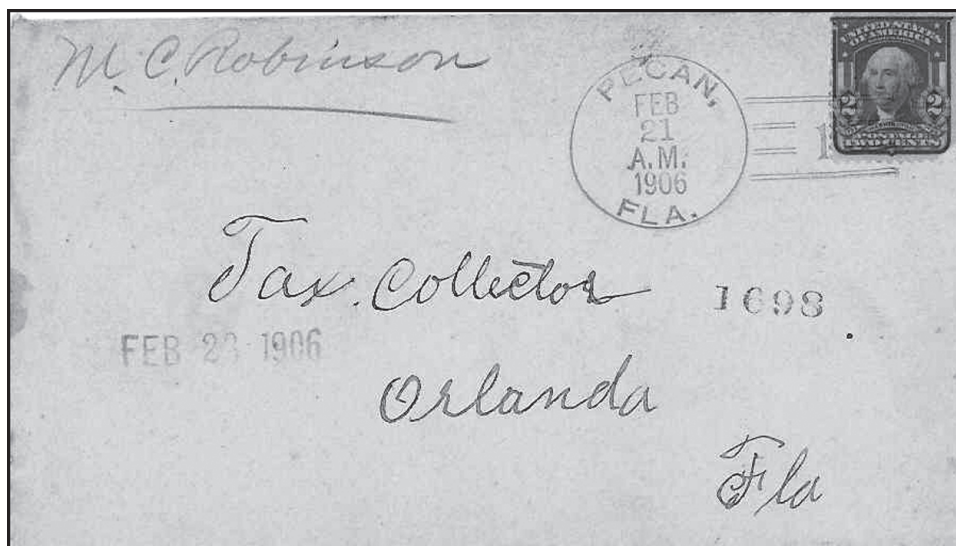 M. C. Robinson
PECAN,
FEB
21
A.M.
1906
FLA.
1
UNITED STATES
OF AMERICA
2 2
POSTAGE
TWO CENTS
Tax Collector
1698
FEB 23 1906
Orlanda
Fla